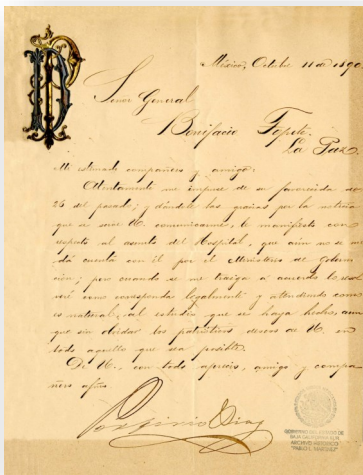 PD
México, Octubre 11 de 1890
Señor General
Bonifacio Topete.
La Paz.
Mi estimado compañero y amigo:
Atentamente me impuse de su favorecida del
26 del pasado; y dándole las gracias por la noticia
que se sirve U. comunicarme, le manifiesto con
respecto al asunto del Hospital, que aún no se me
dá cuenta con él por el Ministerio de Goberna
ción; pero cuando se me traiga á acuerdo lo resol
veré como corresponda legalmente y atendiendo como
es material, al estudio que se haya hecho, aun
que sin olvidar los patrióticos deseos de U. en
todo aquello que sea posible.
De U., con todo aprecio, amigo y compa
ñero afmo.
Porfirio Diaz
GOBIERNO DEL ESTADO DE
BAJA CALIFORNIA SUR
ARCHIVO HISTÓRICO
"PABLO L. MARTÍNEZ"